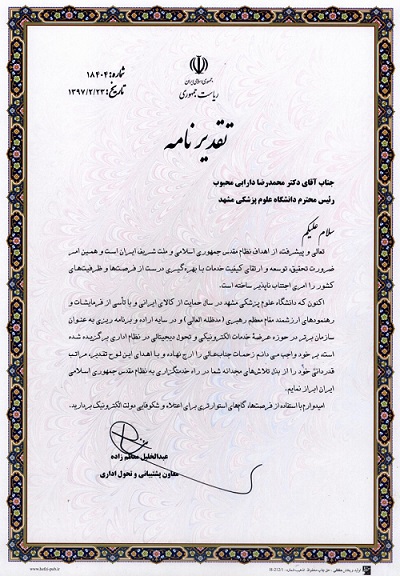 جمهوری اسلامی ایران
ریاست جمهوری
شماره: ۱۸۴۰۴
تاریخ: ۱۳۹۷/۲/۲۳
تقدیرنامه
جناب آقای دکتر محمدرضا دارابی محبوب
رئیس محترم دانشگاه علوم پزشکی مشهد
سلام علیکم
تعالی و پیشرفت، از اهداف نظام مقدس جمهوری اسلامی و ملت شریف ایران است و همین امر
ضرورت تحقیق، توسعه و ارتقای کیفیت خدمات با بهره‌گیری درست از فرصت‌ها و ظرفیت‌های
کشور را امری اجتناب ناپذیر ساخته است.
اکنون که دانشگاه علوم پزشکی مشهد در سال حمایت از کالای ایرانی و با تأسی از فرمایشات و
رهنمودهای ارزشمند مقام معظم رهبری (مدظله العالی) و در سایه اراده و برنامه ریزی به عنوان
سازمان برتر در حوزه عرضۀ خدمات الکترونیکی و تحول دیجیتالی در نظام اداری برگزیده شده
است، بر خود واجب می دانم زحمات جنابعالی را ارج نهاده و با اهدای این لوح تقدیر، مراتب
قدردانی خود را از بذل تلاش‌های مجدانه شما در راه خدمتگزاری به نظام مقدس جمهوری اسلامی
ایران ابراز نمایم.
امیدوارم با استفاده از فرصت‌ها، گام‌های استوارتری برای اعتلاء و شکوفایی دولت الکترونیک بردارید.
عبدالخلیل
معاون پشتیبانی و تحول اداری